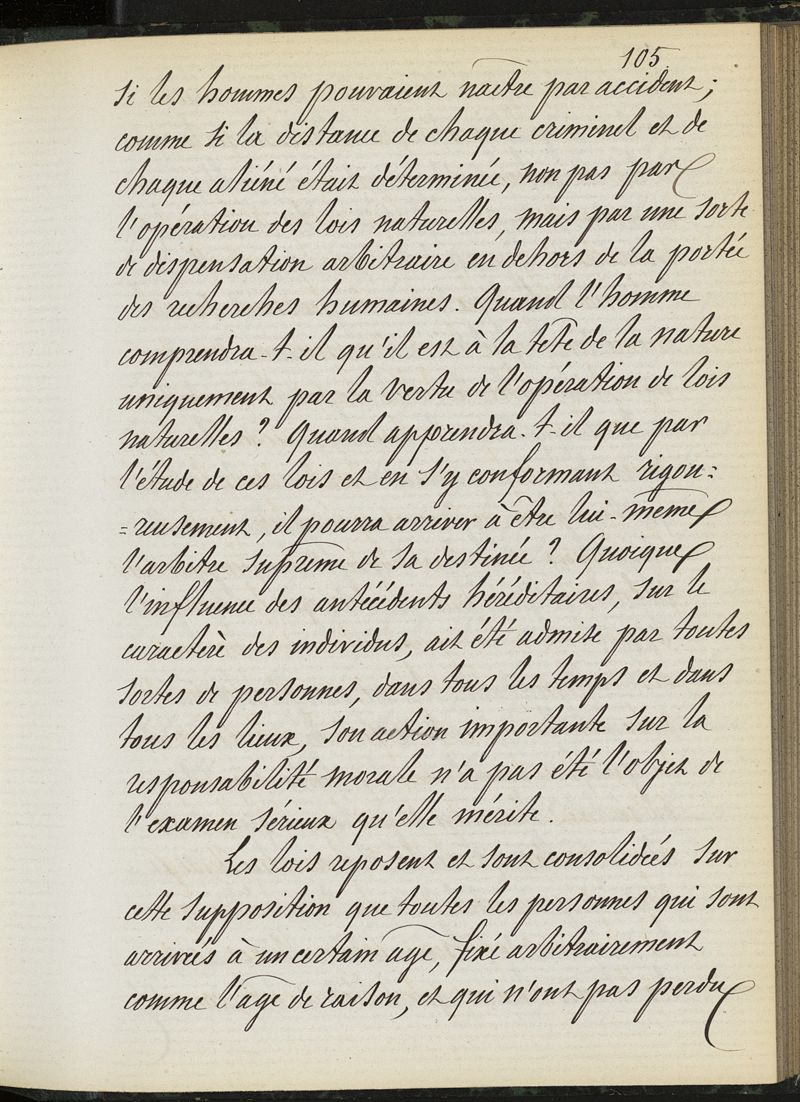 105
si les hommes pouvaient naître par accident ;
comme si la distance de chaque criminel et de
chaque aliéné était déterminée, non pas par
l'opération des lois naturelles, mais par une sorte
de dispensation arbitraire en dehors de la portée
des recherches humaines. Quand l'homme
comprendra-t-il qu'il est à la tête de la nature
uniquement par la vertu de l'opération de lois
naturelles ? Quand apprendra-t-il que par
l'étude de ces lois et en s'y conformant rigou=
=reusement, il pourra arriver à être lui-même
l'arbitre suprême de sa destinée ? Quoique
l'influence des antécédents héréditaires, sur le
caractère des individus, ait été admise par toutes
sortes de personnes, dans tous les temps et dans
tous les lieux, son action importante sur la
responsabilité morale n'a pas été l'objet de
l'examen sérieux qu'elle mérite.
Les lois reposent et sont consolidées sur
cette supposition que toutes les personnes qui sont
arrivées à un certain âge, fixé arbitrairement
comme l'âge de raison, et qui n'ont pas perdu